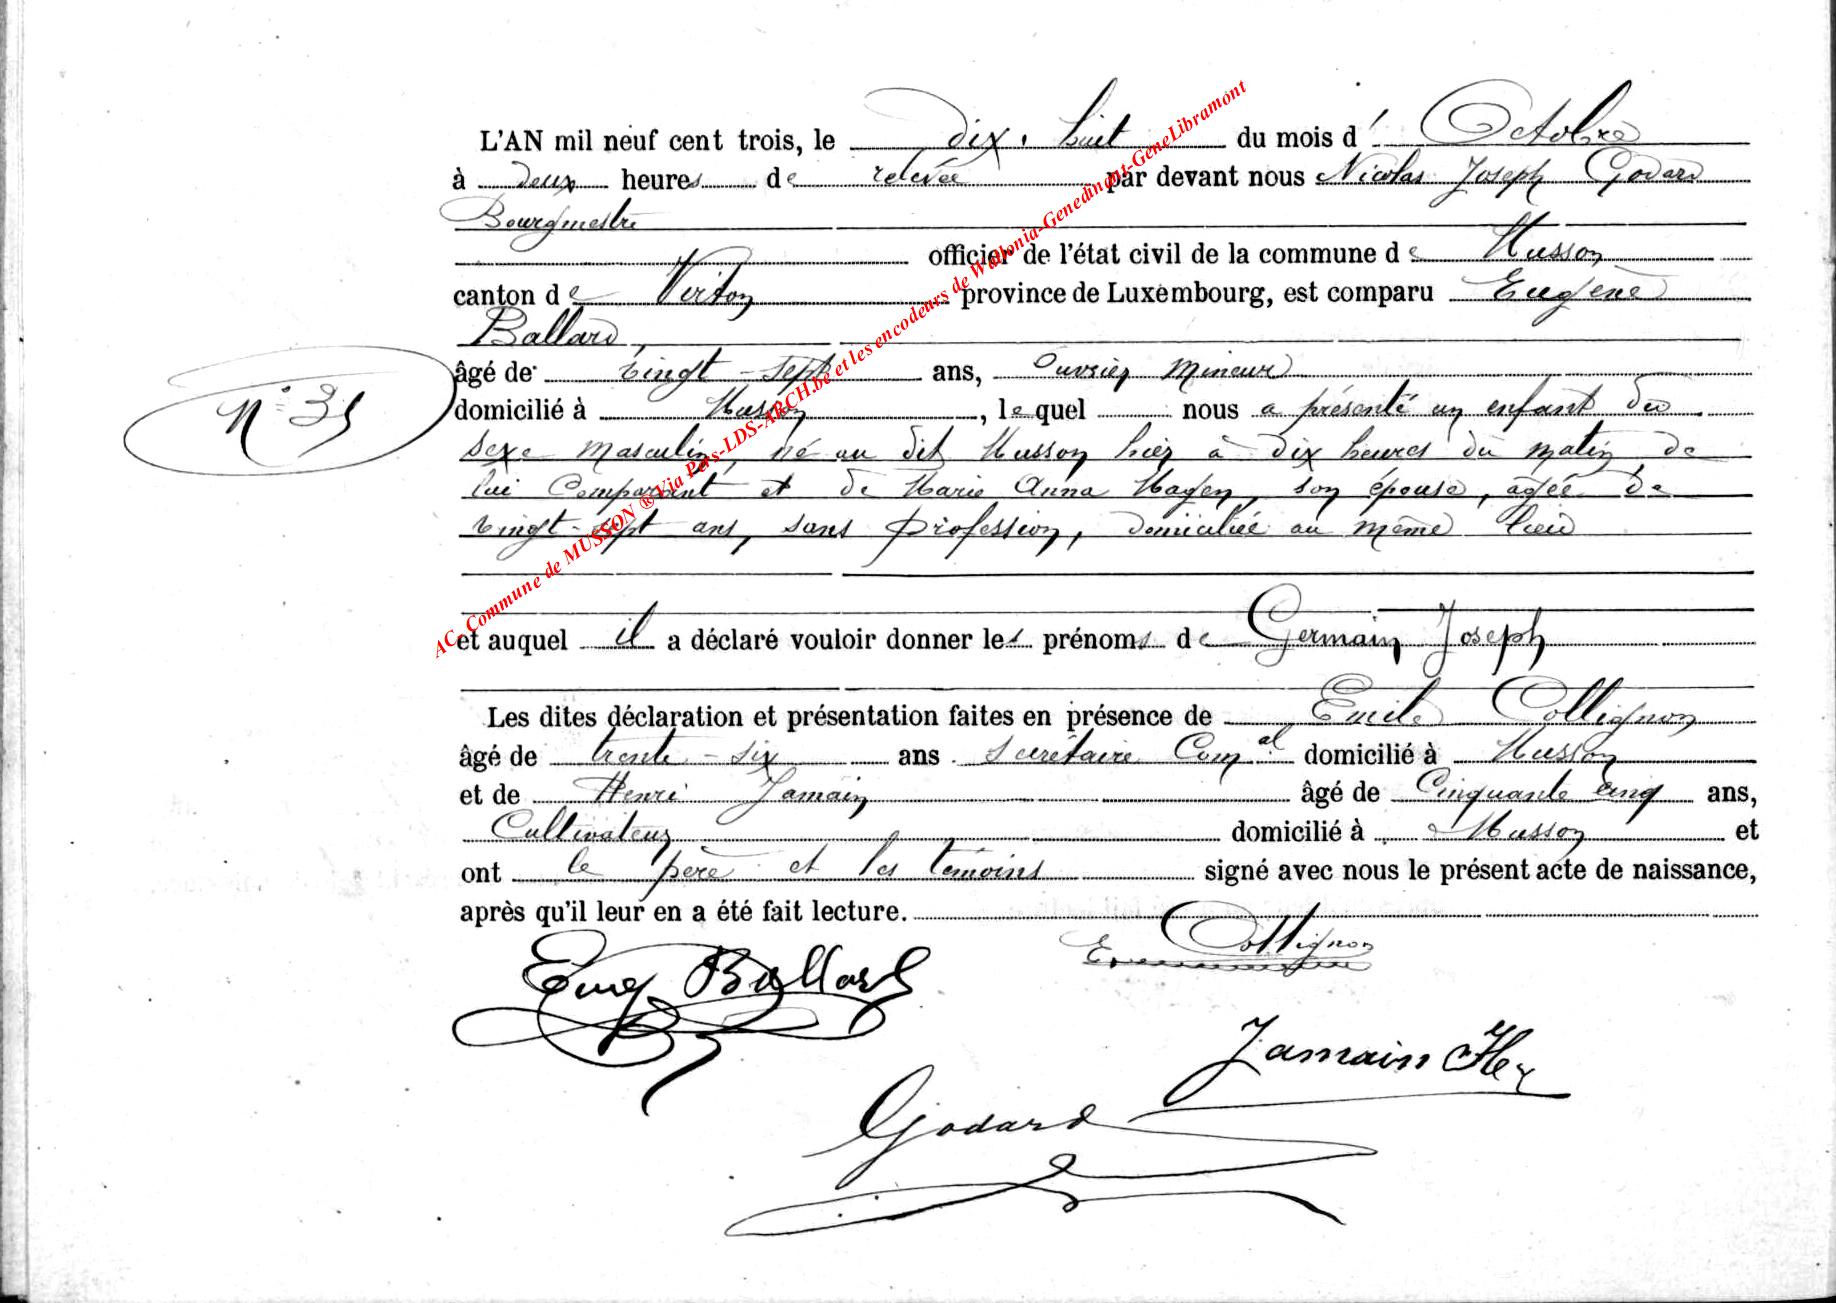 L'AN mil neuf cent trois, le dix-huit du mois d'Octobre
à deux heures de relevée par devant nous Nicolas Joseph Godard
Bourgmestre
officier de l'état civil de la commune de Musson
canton de Virton province de Luxembourg, est comparu Eugène
Ballard,
âgé de vingt-sept ans, ouvrier mineur
domicilié à Musson, lequel nous a présenté un enfant du
N° 35
sexe masculin, né au dit Musson hier à dix heures du matin de
lui Comparant et de Marie Anna Hagen, son épouse, agée de
vingt-sept ans, sans profession, domiciliée au même lieu
et auquel il a déclaré vouloir donner les prénoms de Germain Joseph
Les dites déclaration et présentation faites en présence de Emile Collignon
âgé de trente-six ans secrétaire Com al domicilié à Musson
et de Henri Jamain âgé de Cinquante cinq ans,
Cultivateur domicilié à Musson et
ont le père et les témoins signé avec nous le présent acte de naissance,
après qu'il leur en a été fait lecture.
E. Collignon
Eug Ballard
Jamain Hen
Godard
AC. Commune de MUSSON ® Via Pers-LDS-ARCH.be et les encodeurs de Wallonia-Genedinant-GeneLibramont